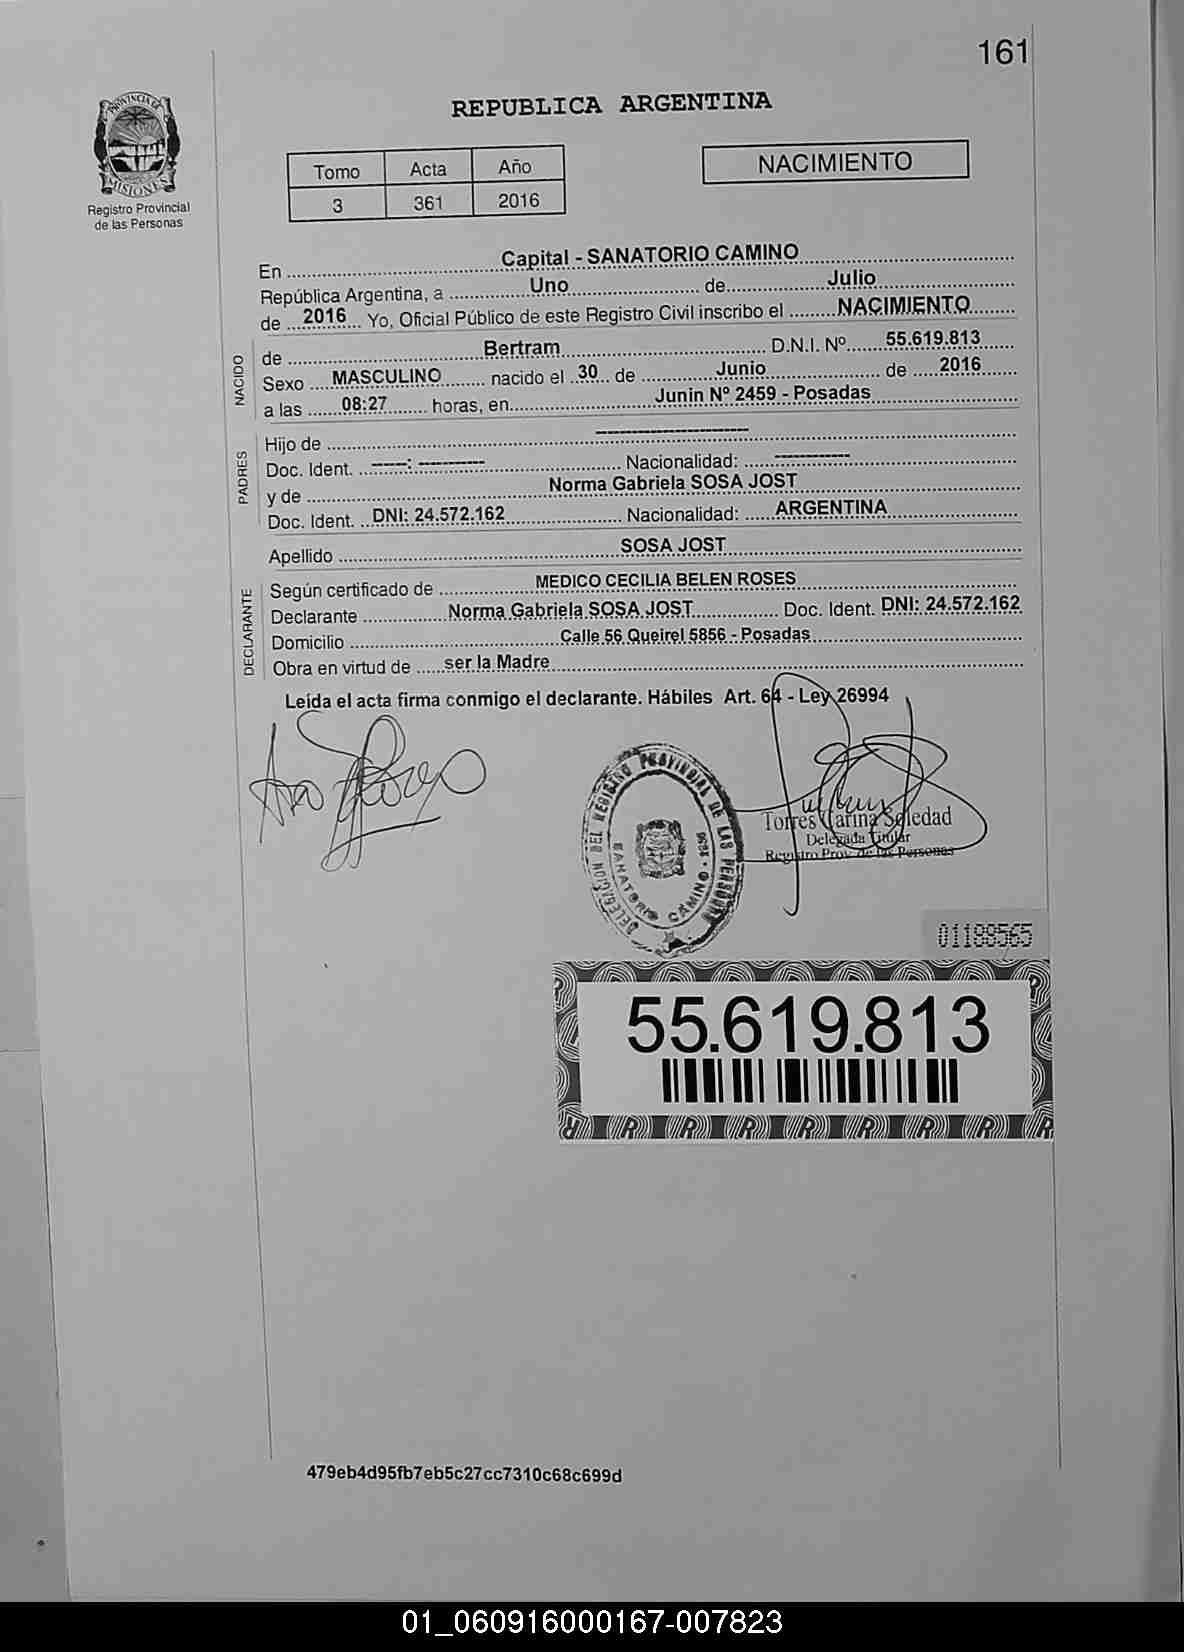 161
REPUBLICA ARGENTINA
PROVINCIA DE
MISIONES
Registro Provincial
de las Personas
Tomo Acta Año
3 361 2016
NACIMIENTO
En ........ Capital - SANATORIO CAMINO ........
República Argentina, a ........ Uno ........ de ........ Julio ........
de ... 2016 ... Yo, Oficial Público de este Registro Civil inscribo el ........ NACIMIENTO ........
NACIDO
de ........ Bertram ........ D.N.I. Nº ...... 55.619.813 ......
Sexo .... MASCULINO ........ nacido el .. 30 .. de ........ Junio ........ de ..... 2016 ......
a las ...... 08:27 ........ horas, en ........ Junin Nº 2459 - Posadas ........
PADRES
Hijo de ........ -------------------- ........
Doc. Ident. .. -----: ---------- ........ Nacionalidad: ..... ----------- ........
y de ........ Norma Gabriela SOSA JOST ........
Doc. Ident. .. DNI: 24.572.162 ........ Nacionalidad: ..... ARGENTINA ........
Apellido ........ SOSA JOST ........
DECLARANTE
Según certificado de ........ MEDICO CECILIA BELEN ROSES ........
Declarante ........ Norma Gabriela SOSA JOST ........ Doc. Ident. DNI: 24.572.162
Domicilio ........ Calle 56 Queirel 5856 - Posadas ........
Obra en virtud de ..... ser la Madre ........
Leída el acta firma conmigo el declarante. Hábiles Art. 64 - Ley 26994
DELEGACION DEL REGISTRO PROVINCIAL DE LAS PERSONAS
SANATORIO CAMINO
Torres Carina Soledad
Delegada Titular
Registro Prov. de las Personas
01188565
55.619.813
479eb4d95fb7eb5c27cc7310c68c699d
01_060916000167-007823